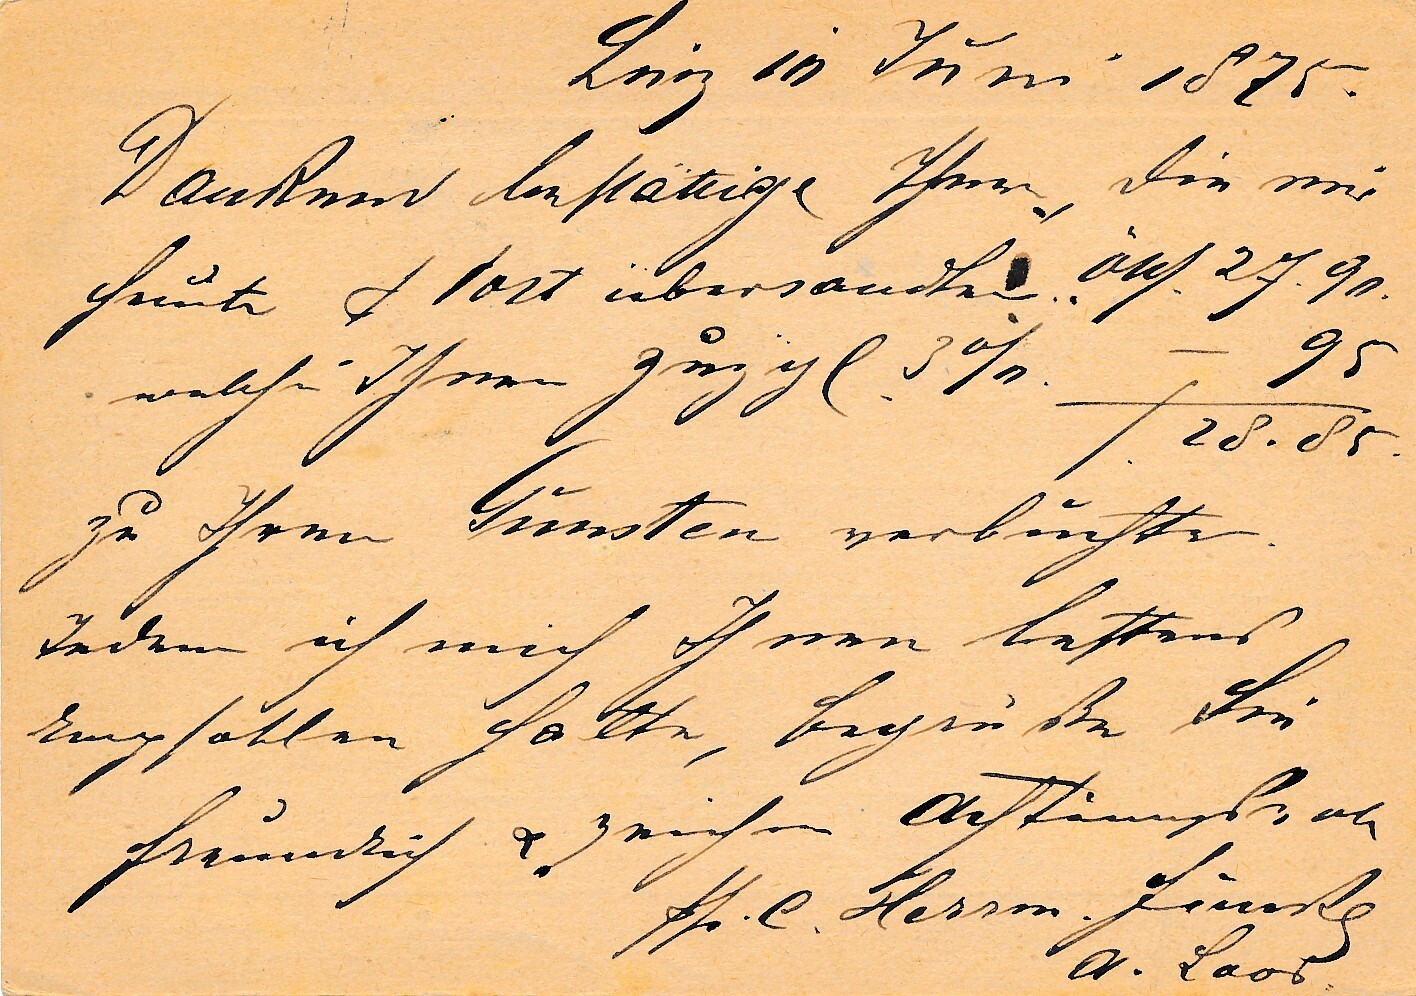 Linz im Juni 1875.
Dankend bestättige Ihnen, die mir
heute p Post übersandten öW. 27.90.
welche Ihnen zuzgl. 3% — 95
28.85.
zu Ihren Gunsten verbuchte.
Indem ich mich Ihnen bestens
empfohlen halte, begrüße Sie
freundlich & zeichne achtungsvoll
pp. C. Herrm.
A. Laos